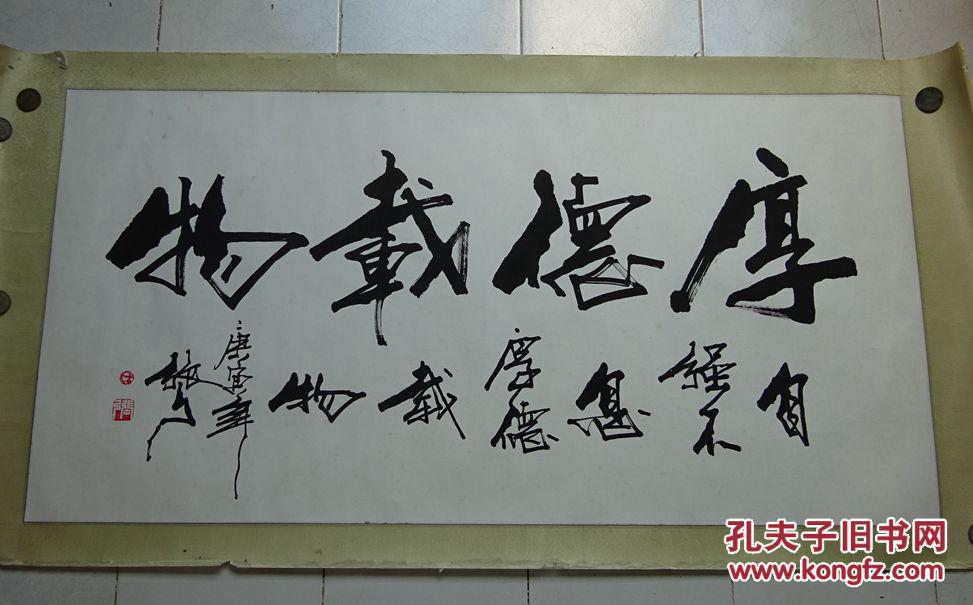 厚德載物
自
强不
息
厚德
載
物
庚寅年
孔夫子旧书网
www.kongfz.com